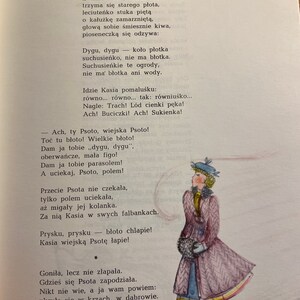 trzyma się starego płota,
leciuteńko stuka piętą
o kałużkę zamarzniętą,
głową sobie śmiesznie kiwa,
pioseneczką się odzywa:
Dygu, dygu — koło płotka
suchusieńko, nie ma błotka.
Suchusieńkie te ogrody,
nie ma błotka ani wody.
Idzie Kasia pomaluśku:
równo... równo... tak: równiuśko...
Nagle: Trach! Lód cienki pęka!
Ach! Buciczki! Ach! Sukienka!
— Ach, ty Psoto, wiejska Psoto!
Toć tu błoto! Wielkie błoto!
Dam ja tobie „dygu, dygu",
oberwańcze, mała figo!
Dam ja tobie parasolem!
A uciekaj, Psoto, polem!
Przecie Psota nie czekała,
tylko polem uciekała,
aż migały jej kolanka.
Za nią Kasia w swych falbankach.
Prysku, prysku — błoto chlapie!
Kasia wiejską Psotę łapie!
•
Goniła, lecz nie złapała.
Gdzieś się Psota zapodziała.
Nikt nie wie, a ja wam powiem:
w krzach, w dąbrowie,